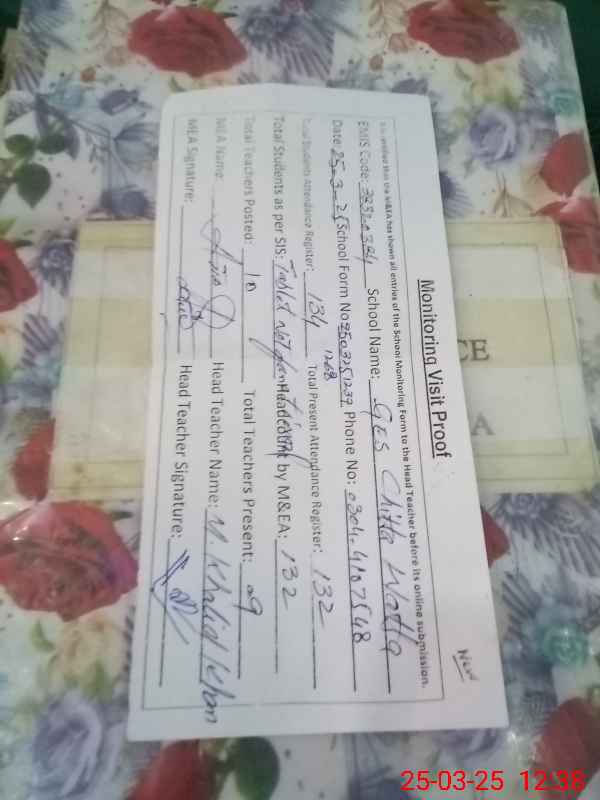 NEW
Monitoring Visit Proof
It is certified that the M&EA has shown all entries of the School Monitoring Form to the Head Teacher before its online submission.
EMIS Code: School Name: GES Chitta Watta
Date: 25-3-25 School Form No 2503251239 Phone No: 0304-4107548
1268
Total Students Attendance Register: 134 Total Present Attendance Register: 132
Total Students as per SIS: Tablet not Headcount by M&EA: 132
Total Teachers Posted: 10 Total Teachers Present: 09
MEA Name: Head Teacher Name: M. Khalid Khan
MEA Signature: Head Teacher Signature:
CE
A
25-03-25 12:38